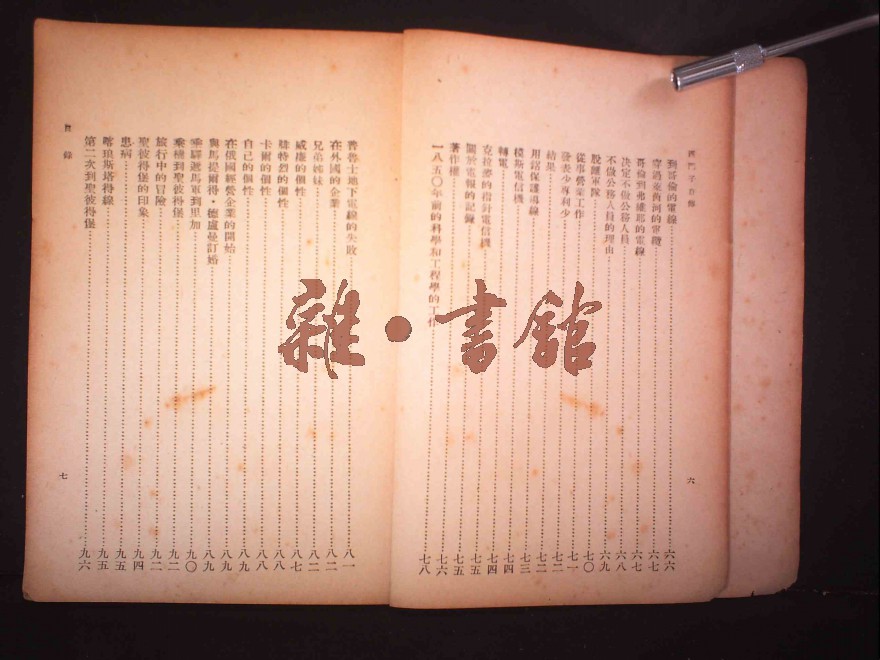 西門子自傳
到哥倫的電線……六六
穿過萊茵河的電纜……六七
哥倫到弗維耶的電線……六七
决定不做公務人員……六八
不做公務人員的理由……六九
脫離軍隊……七〇
從事營業工作……七一
發表少專利少……七二
結果……七二
用鉛保護導線……七二
模斯電信機……七三
轉電……七四
克拉麥的指針電信機……七四
關於電報的記錄……七五
著作權……七六
一八五〇年前的科學和工程學的工作……七八
六
普魯士地下電線的失敗……八一
在外國的企業……八二
兄弟姊妹……八二
威廉的個性……八七
佛特烈的個性……八八
卡爾的個性……八八
自己的個性……八九
在俄國經營企業的開始……八九
與馬提爾得·德盧曼訂婚……八九
乘驛遞馬車到里加……九〇
乘橇到聖彼得堡……九二
旅行中的冒險……九二
聖彼得堡的印象……九四
患病……九五
喀琅斯塔得線……九五
第二次到聖彼得堡……九六
目錄
七
雜·書館